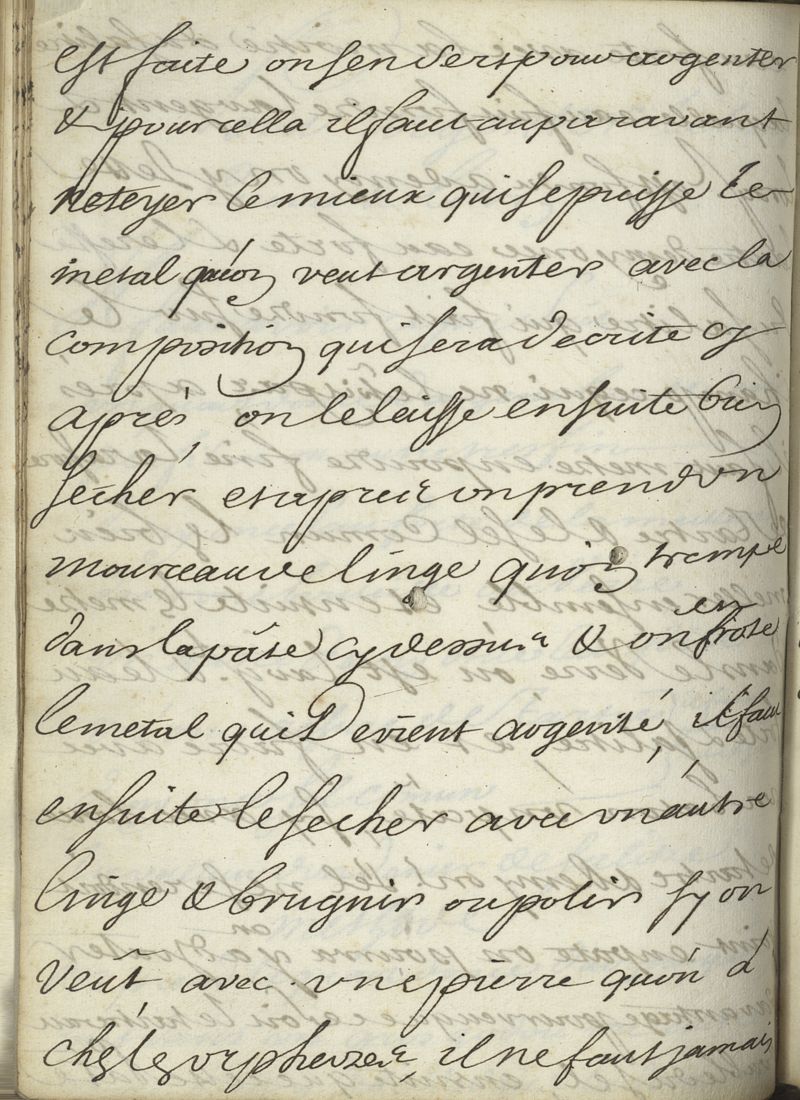 est faite on sen sert pour argenter
& pour cella il faut auparavant
netoyer le mieux qui se puisse le
metal qu'on veut argenter avec la
composition qui sera decrite cy
aprés, on le laisse ensuite bien
sécher et apres on prend un
mourceau de linge qu'on trempe
dans la pâte cy dessus & on en frote
le metal qui devient argenté, il faut
ensuite le secher avec un autre
linge & brugnir ou polir sy on
veut avec une pierre qu'on a
chés les orphevres, il ne faut jamais